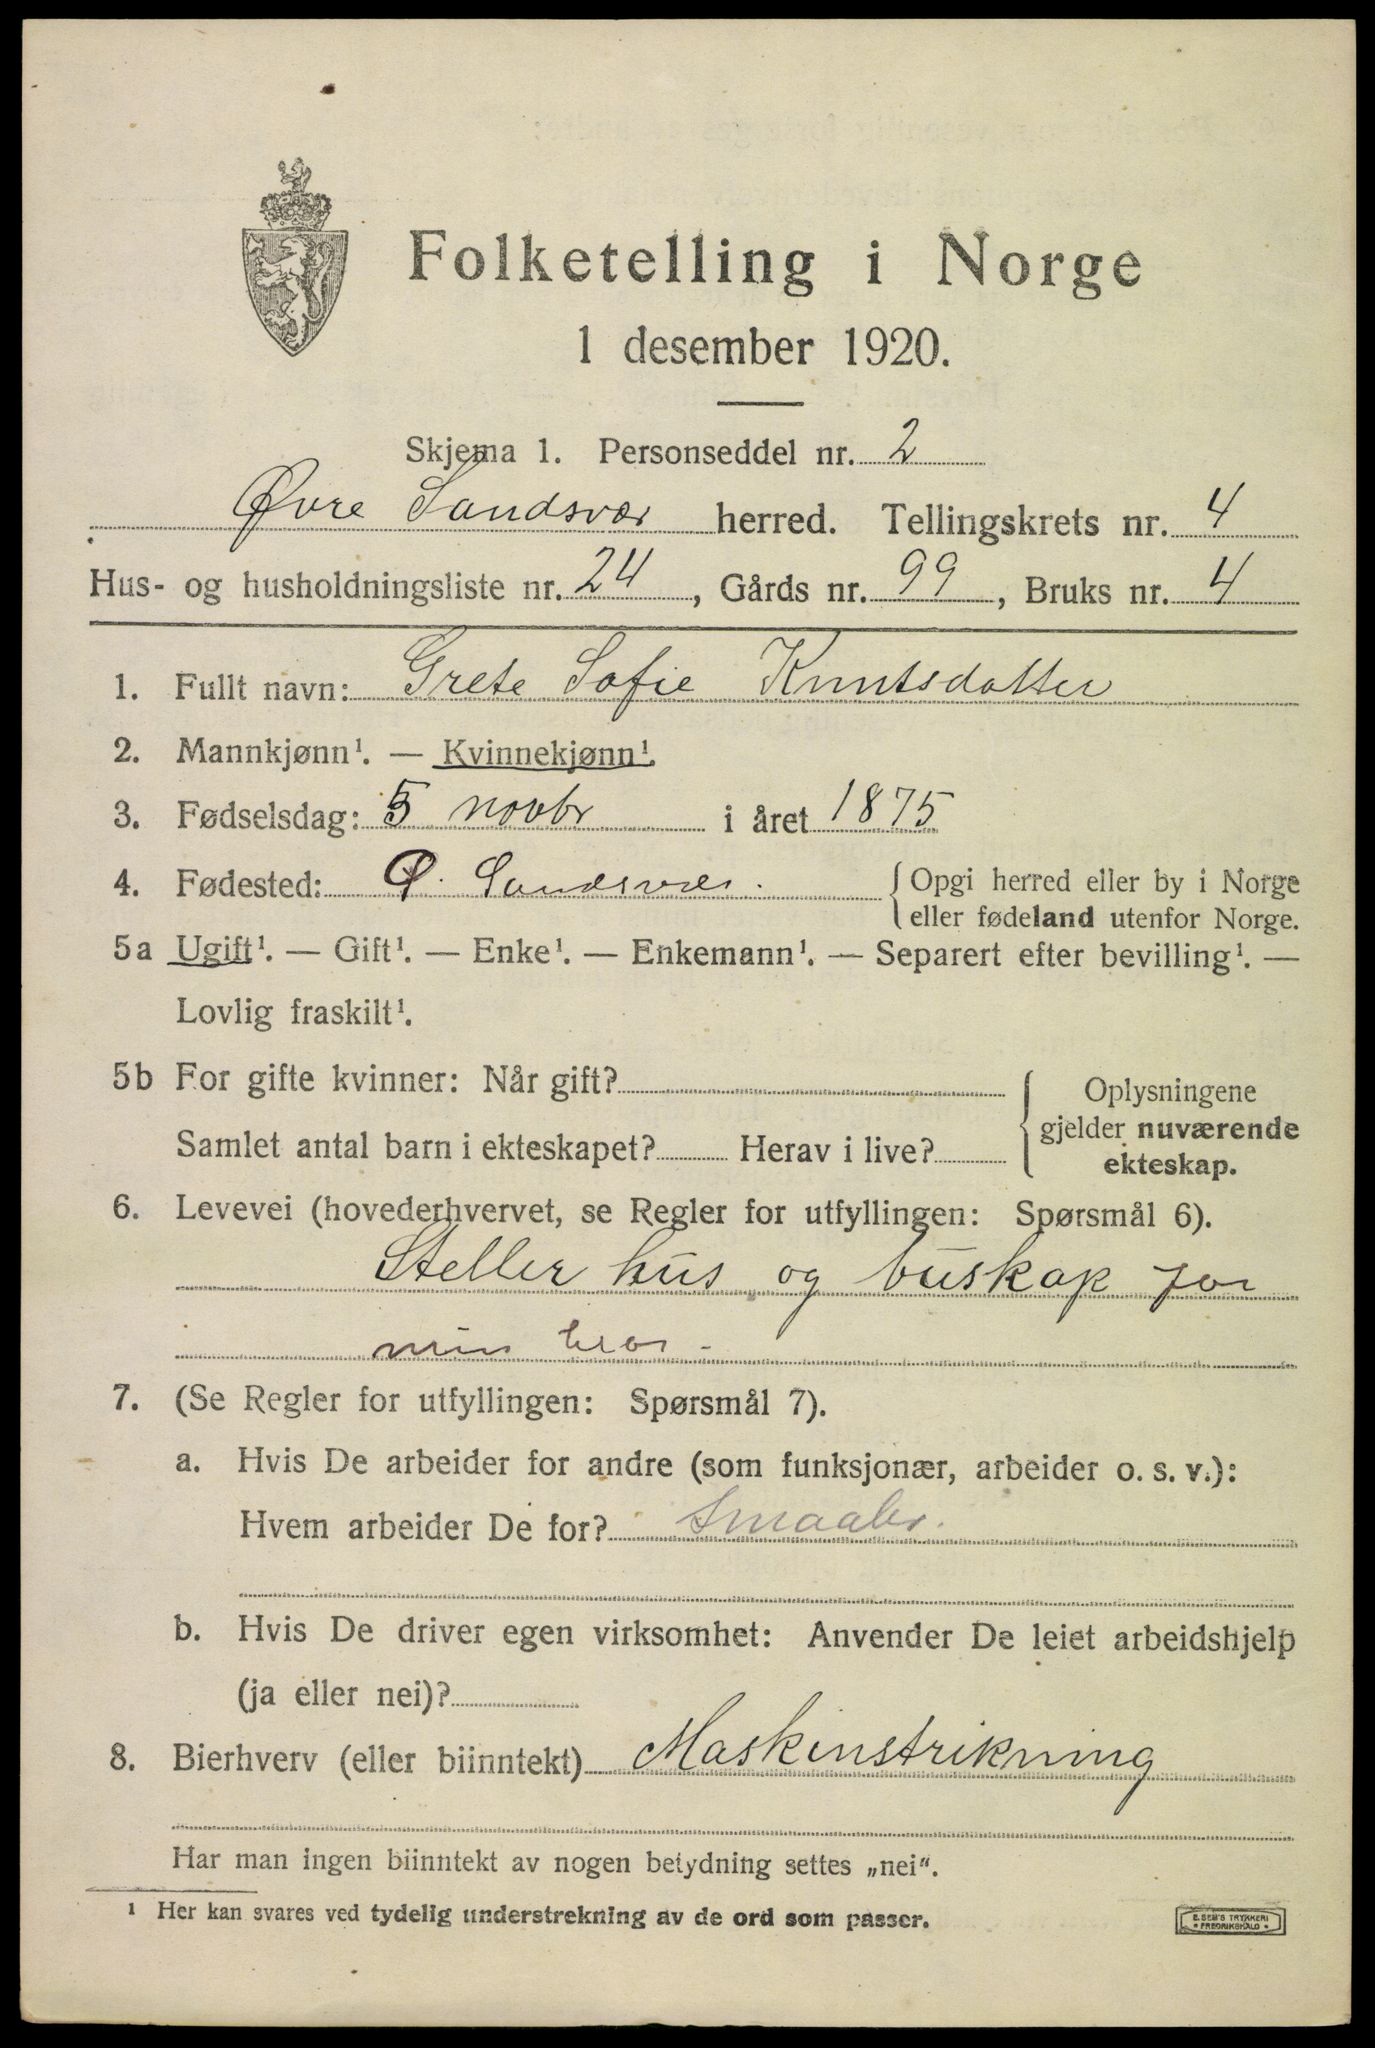 Folketelling i Norge
1 desember 1920.
Skjema 1. Personseddel nr. 2
Øvre Sandsvær herred. Tellingskrets nr. 4
Hus- og husholdningsliste nr. 24, Gårds nr. 99, Bruks nr. 4
1. Fullt navn: Grete Sofie Knutsdatter
2. Mannkjønn¹. — Kvinnekjønn¹.
3. Fødselsdag: 5 novbr i året 1875
4. Fødested: Ø. Sandsvær. { Opgi herred eller by i Norge
eller fødeland utenfor Norge.
5a Ugift¹. — Gift¹. — Enke¹. — Enkemann¹. — Separert efter bevilling¹. —
Lovlig fraskilt¹.
5b For gifte kvinner: Når gift? { Oplysningene
gjelder nuværende
Samlet antal barn i ekteskapet? Herav i live? ekteskap.
6. Levevei (hovederhvervet, se Regler for utfyllingen: Spørsmål 6).
Steller hus og buskap for
min bror.
7. (Se Regler for utfyllingen: Spørsmål 7).
a. Hvis De arbeider for andre (som funksjonær, arbeider o. s. v.):
Hvem arbeider De for? Smaabr.
b. Hvis De driver egen virksomhet: Anvender De leiet arbeidshjelp
(ja eller nei)?
8. Bierhverv (eller biinntekt) Maskinstrikning
Har man ingen biinntekt av nogen betydning settes „nei“.
¹ Her kan svares ved tydelig understrekning av de ord som passer.
E. SEM'S TRYKKERI
FREDRIKSHALD